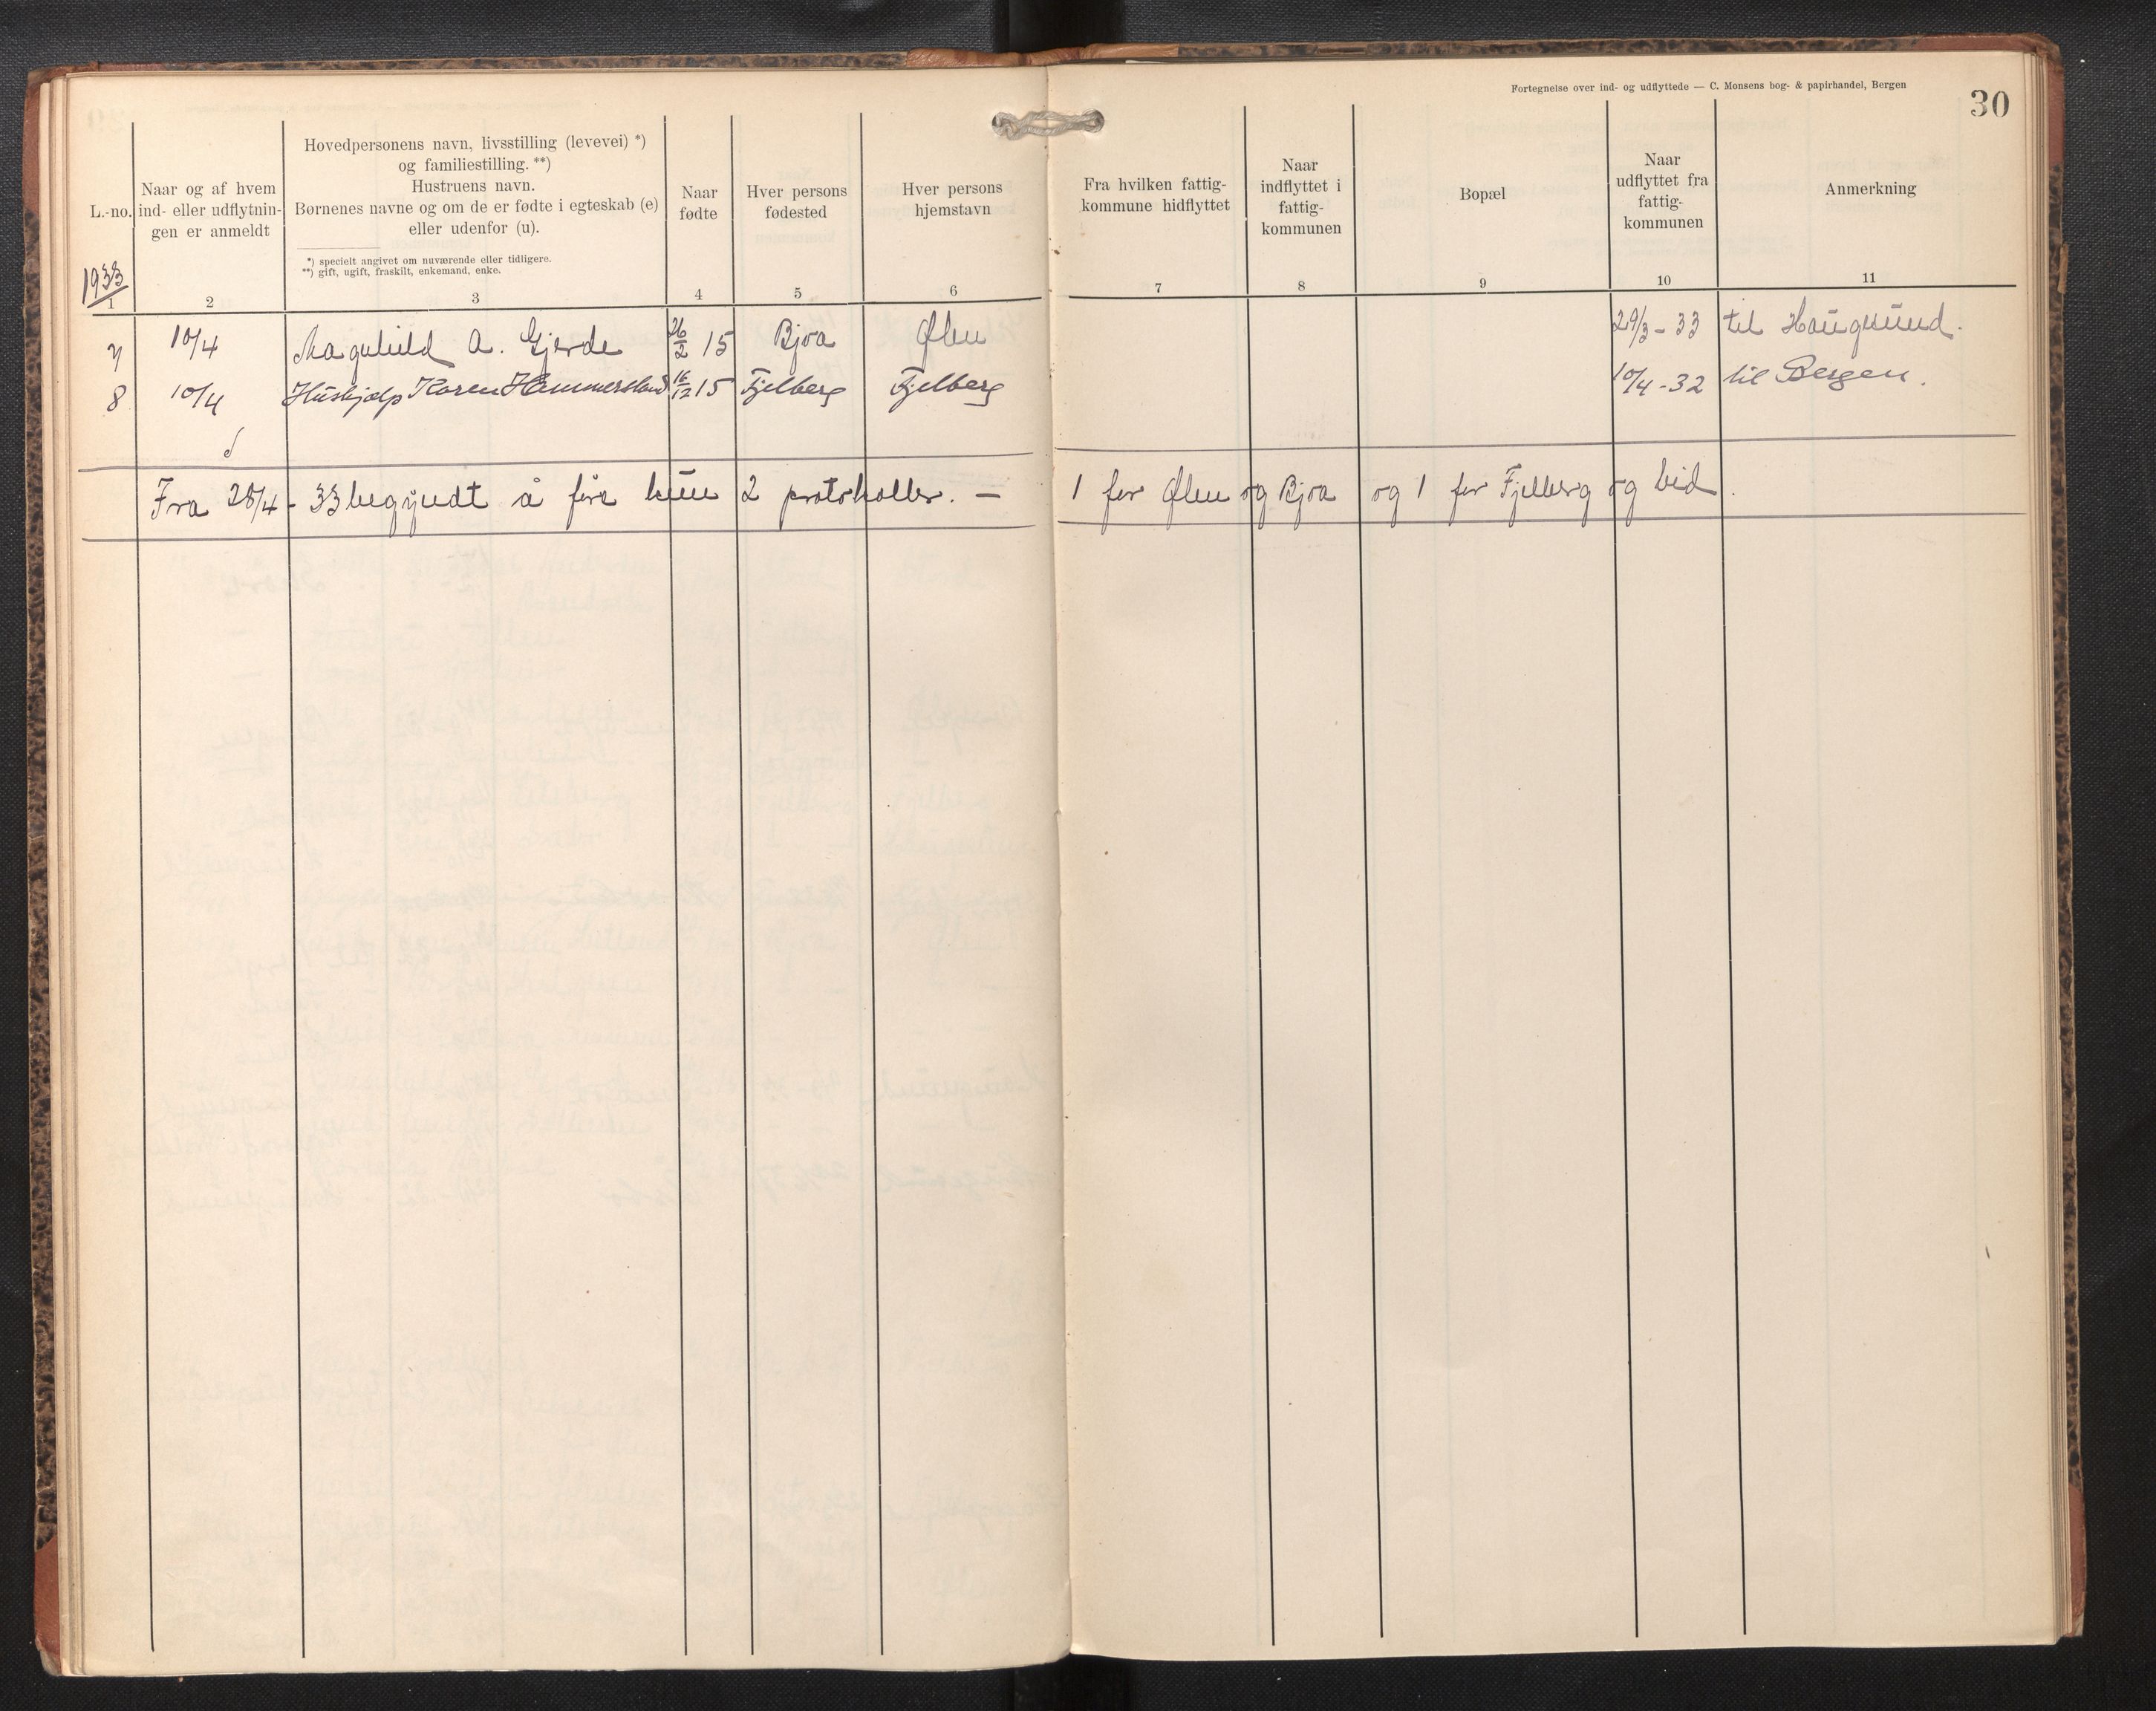 Fortegnelse over ind- og udflyttede — C. Monsens bog- & papirhandel, Bergen
30
L.-no.
Naar og af hvem
ind- eller udflytnin-
gen er anmeldt
Hovedpersonens navn, livsstilling (levevei) *)
og familiestilling. **)
Hustruens navn.
Børnenes navne og om de er fødte i egteskab (e)
eller udenfor (u).
*) specielt angivet om nuværende eller tidligere.
**) gift, ugift, fraskilt, enkemand, enke.
Naar
fødte
Hver persons
fødested
Hver persons
hjemstavn
Fra hvilken fattig-
kommune hidflyttet
Naar
indflyttet i
fattig-
kommunen
Bopæl
Naar
udflyttet fra
fattig-
kommunen
Anmerkning
1933
1 2 3 4 5 6 7 8 9 10 11
7 10/4 Magnhild A. Gjerde 26/2 15 Bjoa Ølen 29/3 - 33 til Haugesund.
8 10/4 Hushjelp Karen Hammersland 16/12 15 Fjelberg Fjelberg 10/4 - 32 til Bergen.
Fra 28/4 - 33 begyndt å føre 2 protokoller. — 1 for Ølen og Bjoa og 1 for Fjelberg og